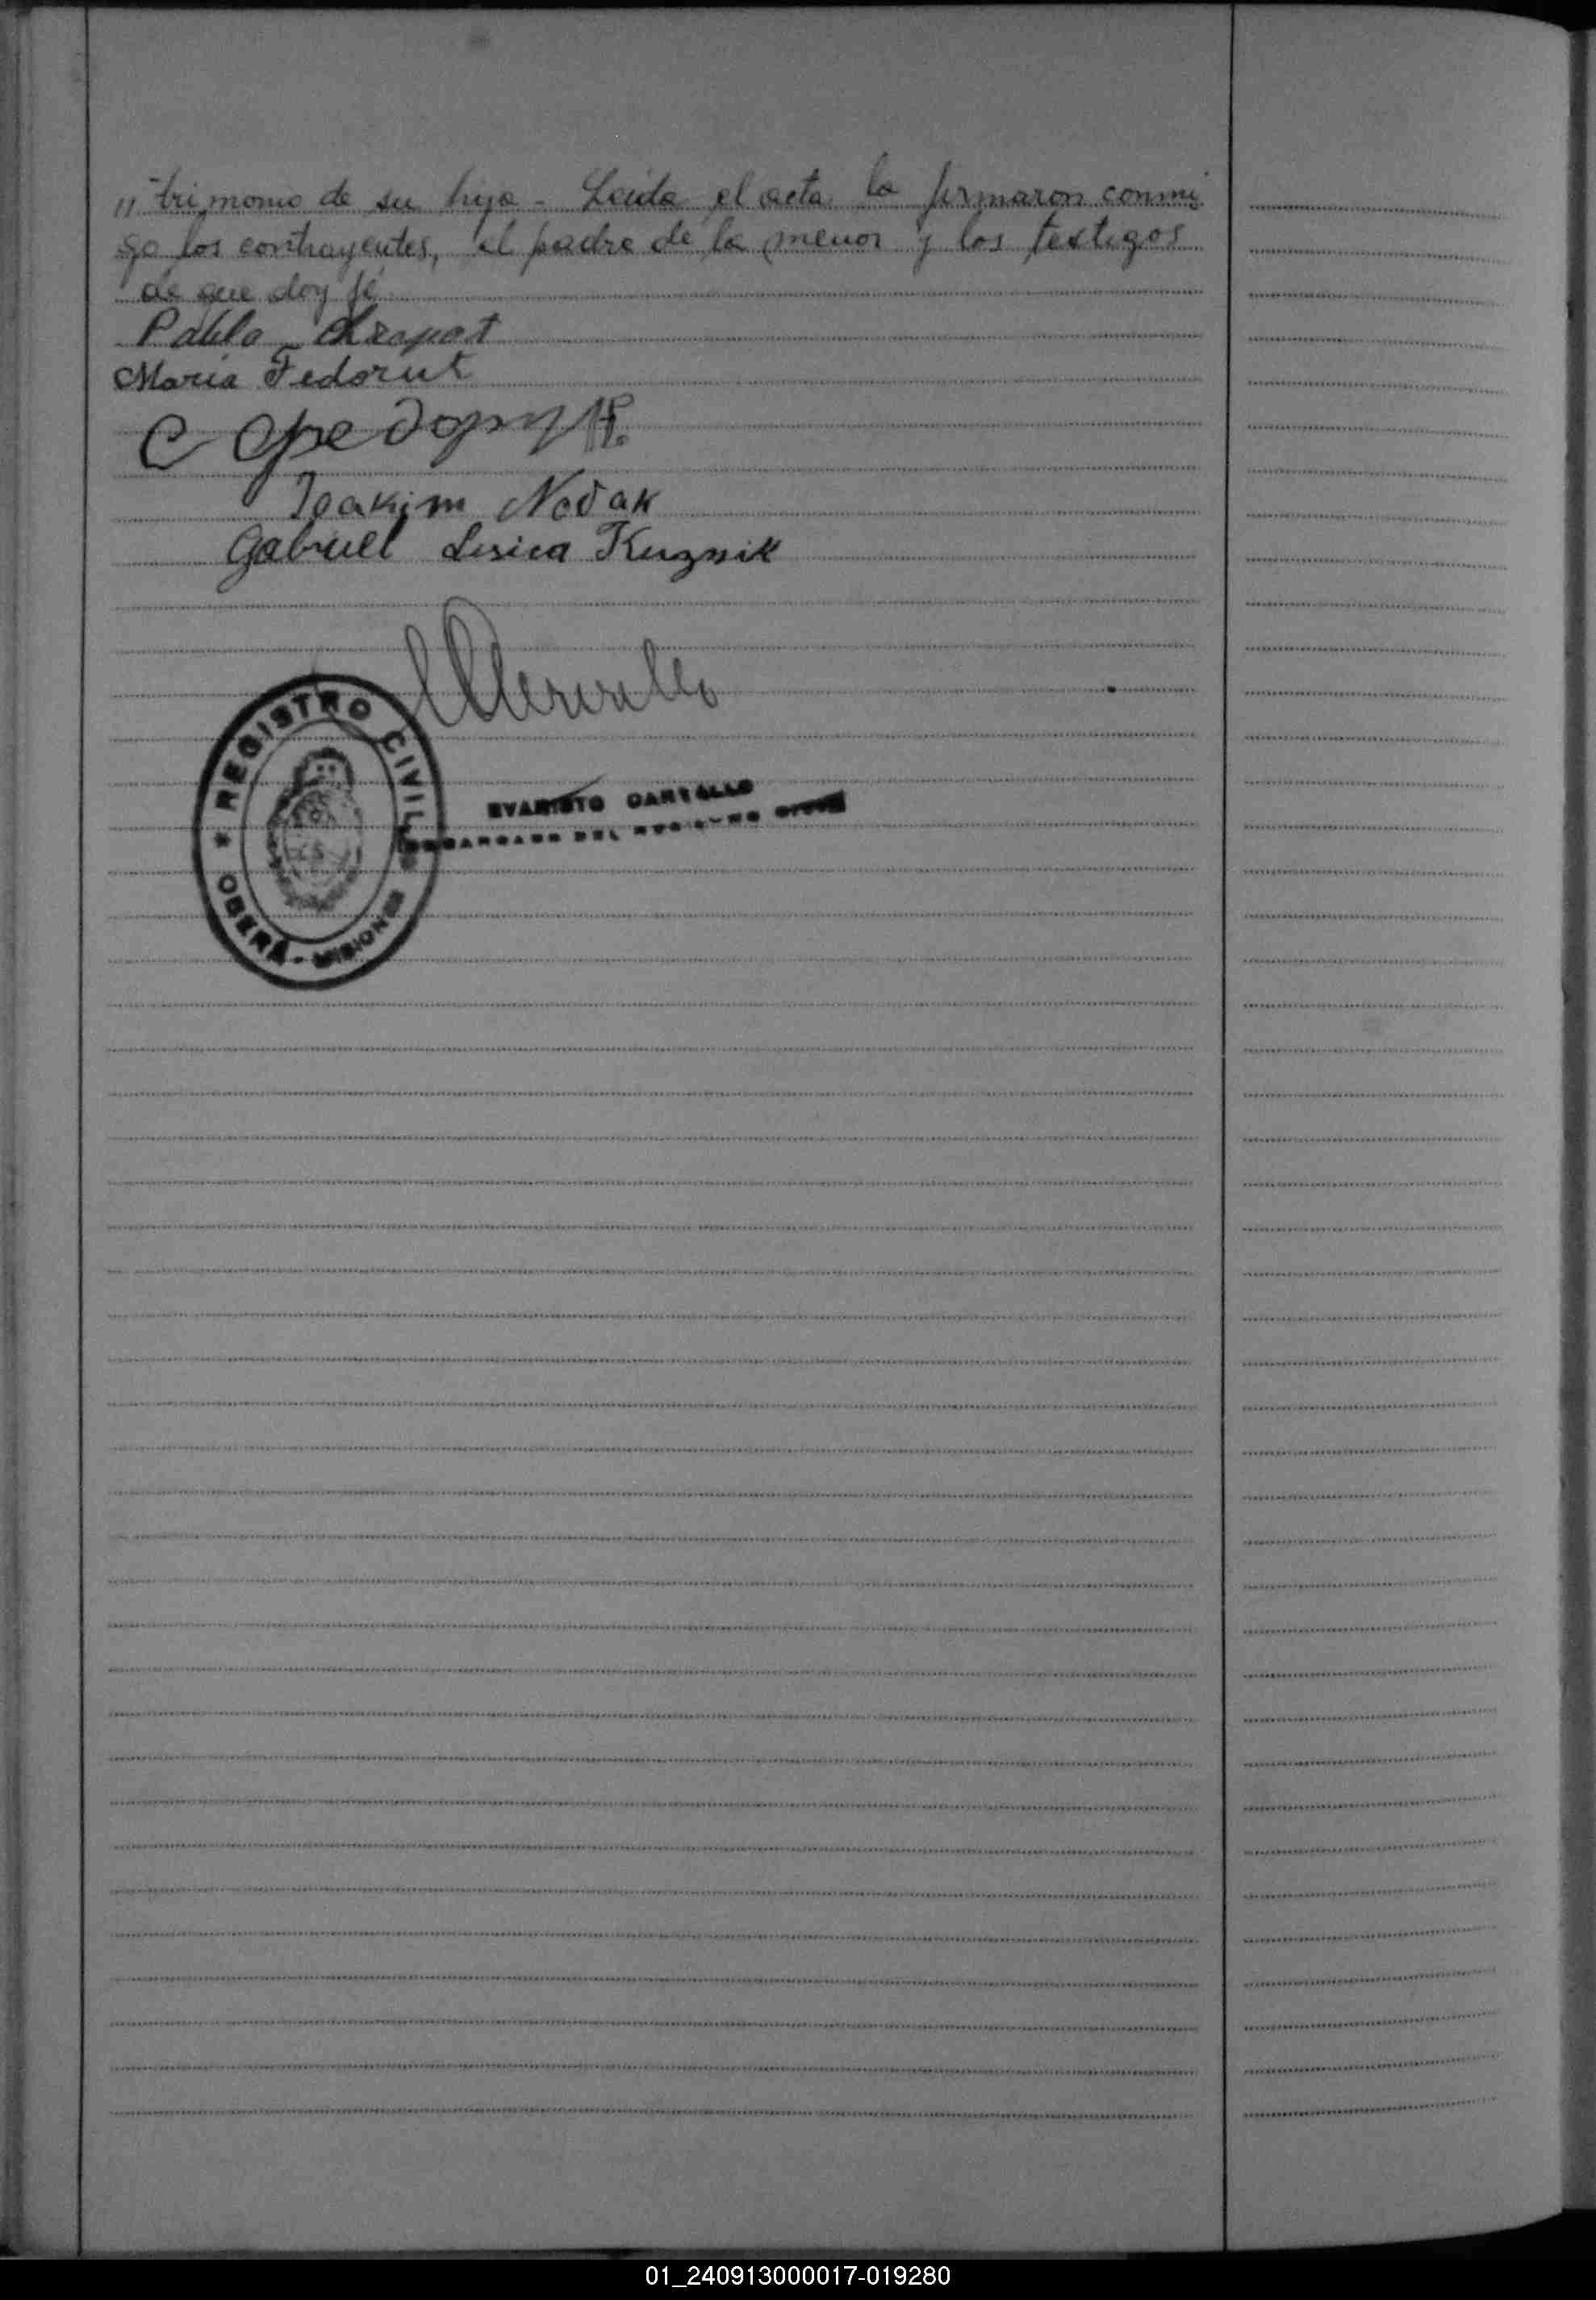 " trimonio de su hija - Leida el acta la firmaron conmi
go los contrayentes, el padre de la menor y los testigos
de que doy fé
Pablo Chrapat
Maria Fedoruk
С Федорук.
Joakim Novak
Gabriel Lisica Kuznik
REGISTRO CIVIL
OBERÁ - MISIONES
EVARISTO CARVALLO
ENCARGADO DEL REGISTRO CIVIL
01_240913000017-019280